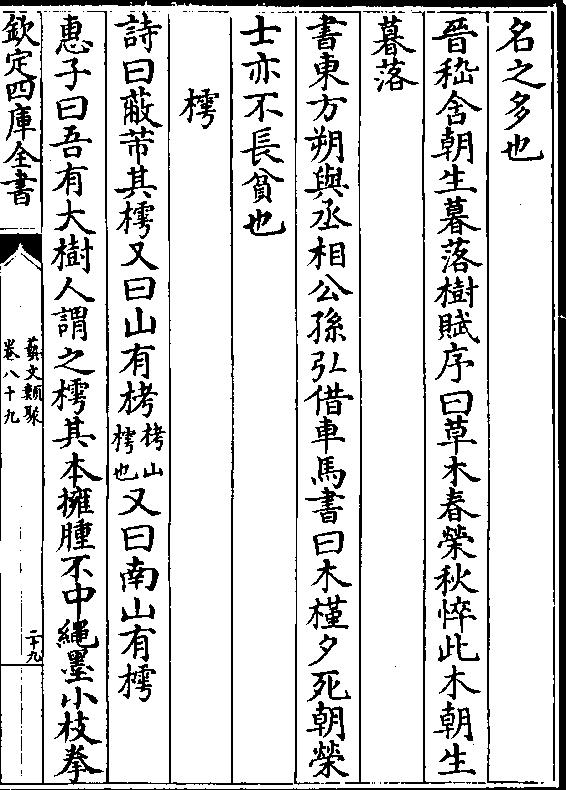 名之多也
晉嵇含朝生暮落樹賦序曰草木春榮秋悴此木朝生
暮落
書東方朔與丞相公孫弘借車馬書曰木槿夕死朝榮
士亦不長貧也
樗
詩曰蔽芾其樗又曰山有栲栲山樗也又曰南山有樗
惠子曰吾有大樹人謂之樗其本擁腫不中繩墨小枝拳
欽定四庫全書
藝文類聚
卷八十九
二十九